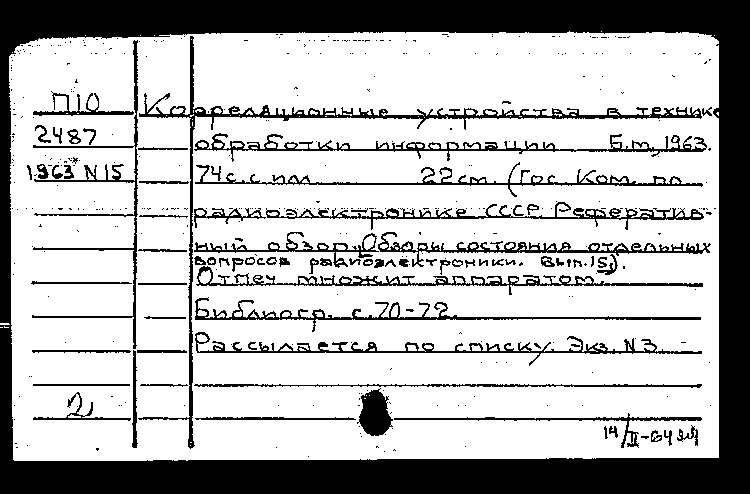 П10 Корреляционные устройства в технике
2487 обработки информации Б.м., 1963.
1963 N 15 74 с. с илл. 22 см. (Гос. Ком. по
радиоэлектронике СССР. Реферативный обзор. "Обзоры состояния отдельных
вопросов радиоэлектроники. Вып. 15).
Отпеч. множит. аппаратом.
Библиогр. с. 70-72.
Рассылается по списку. Экз. N 3
2
14/II-64